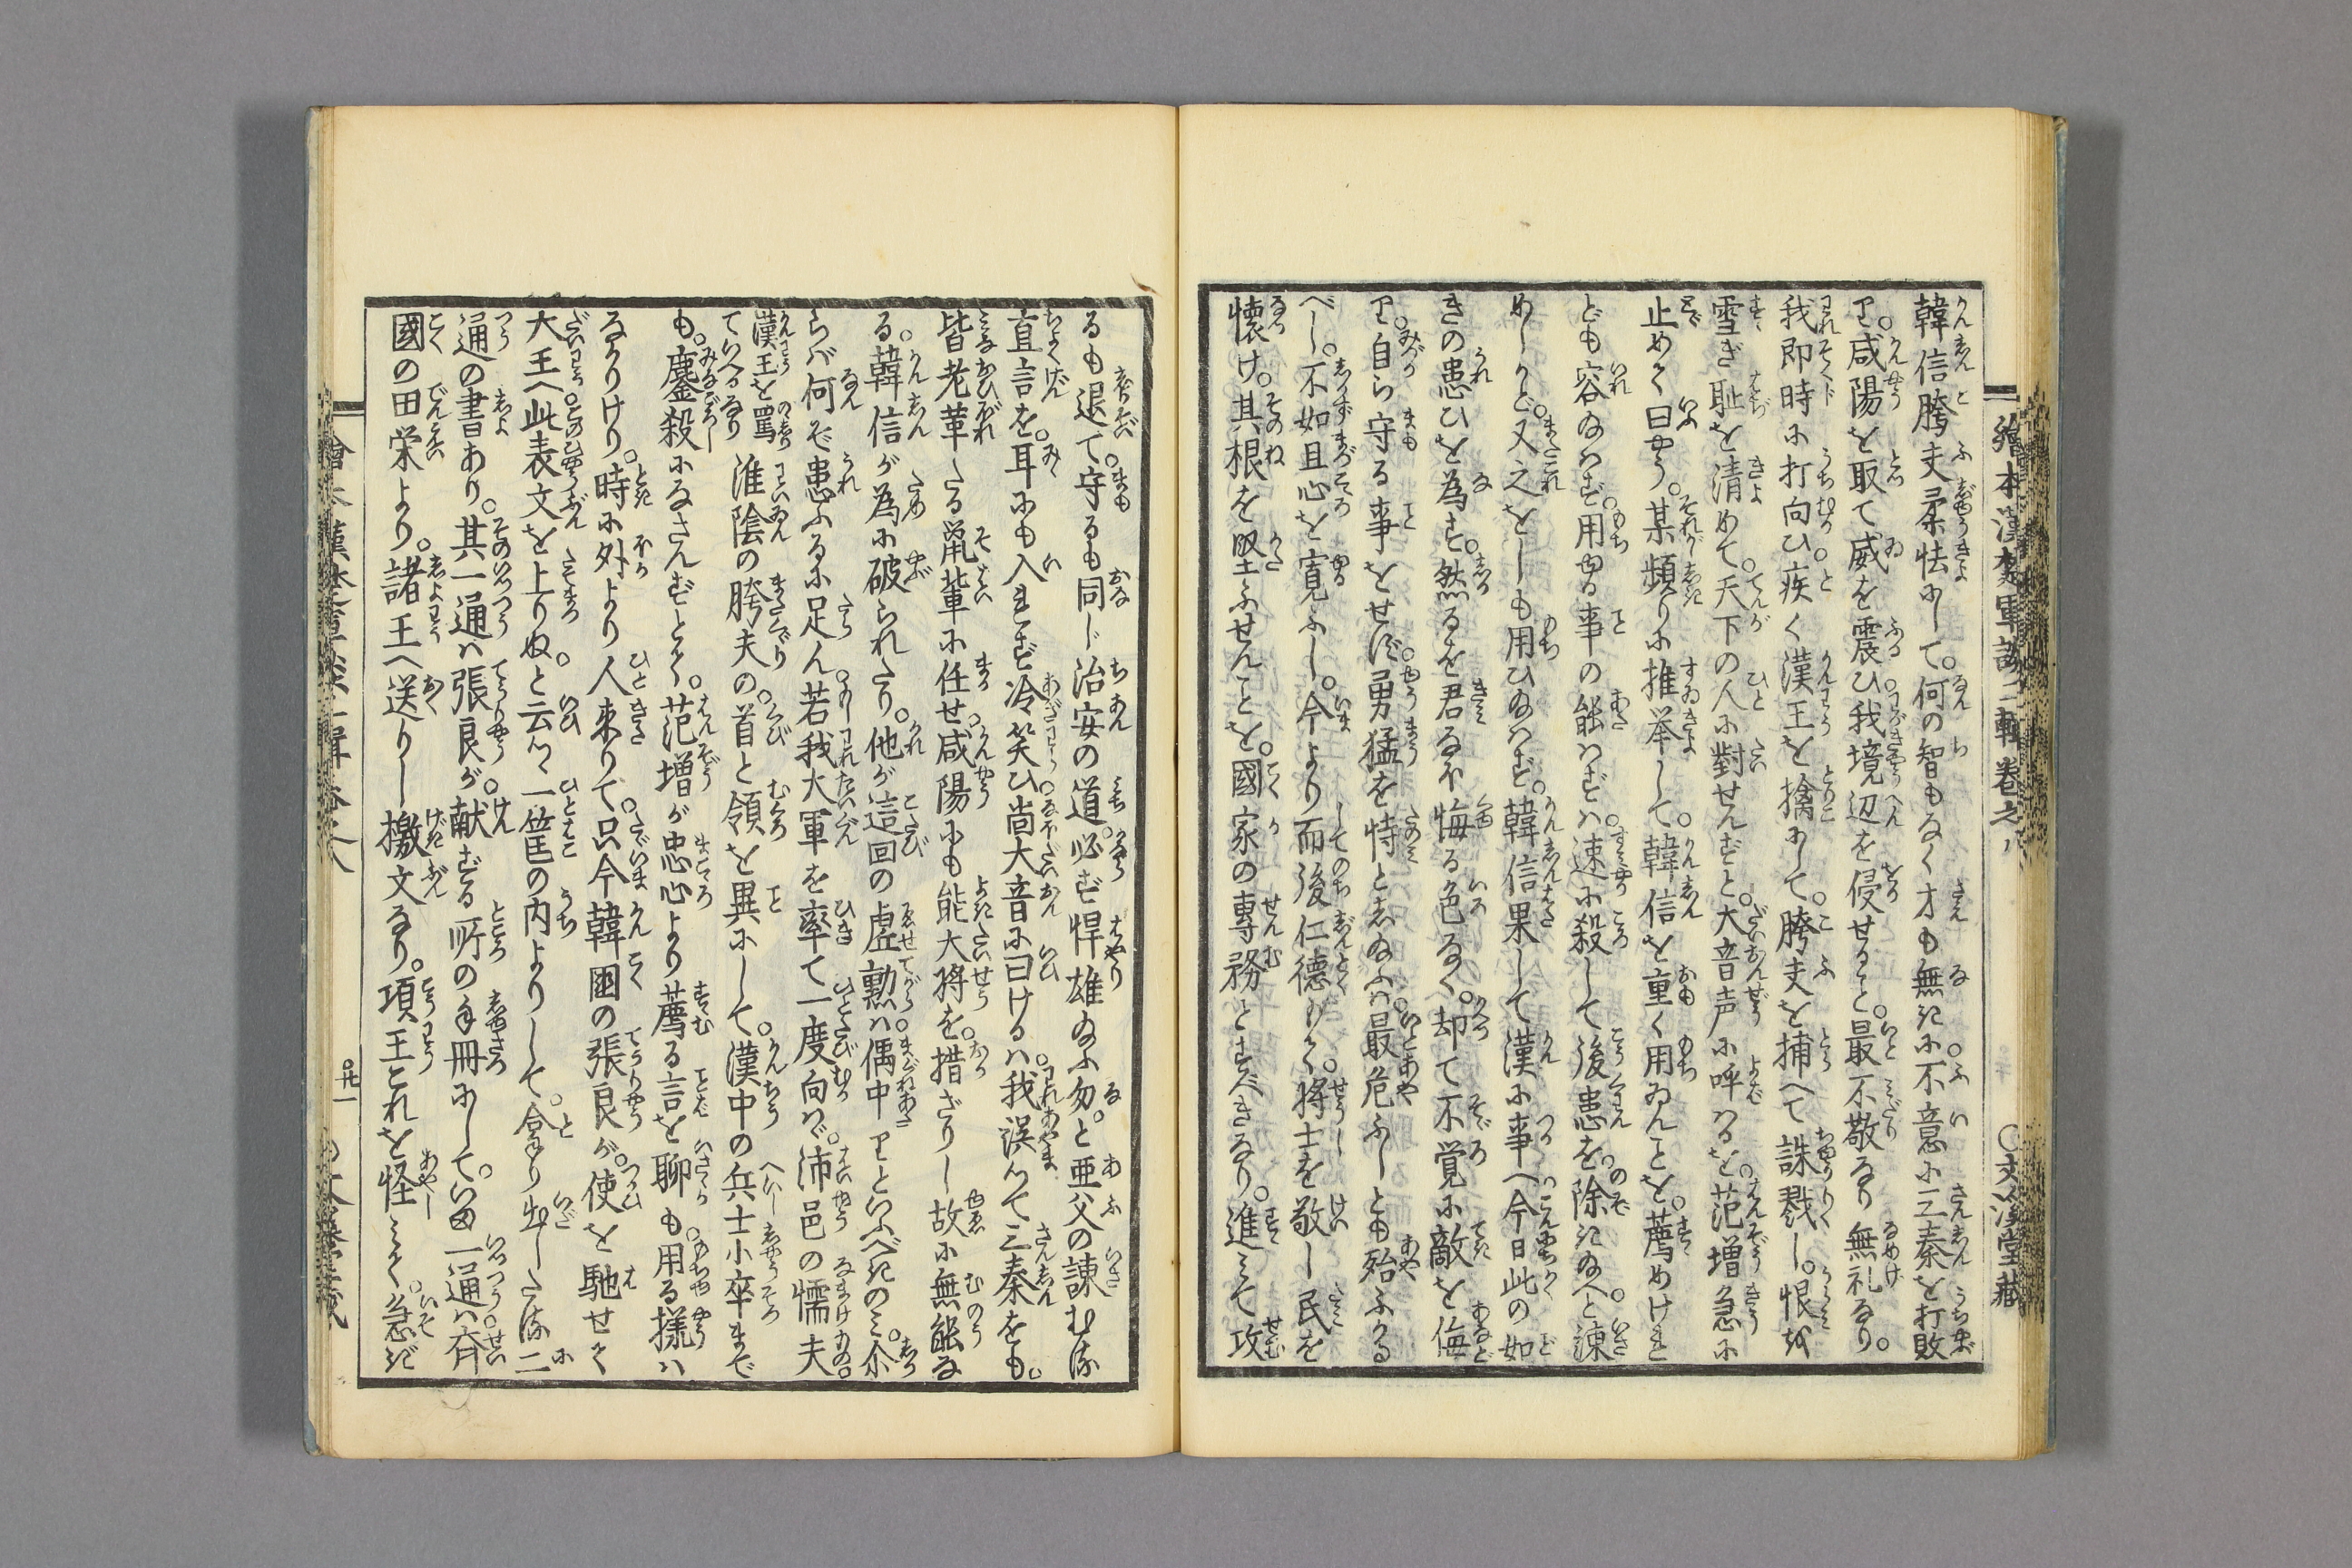 繪本漢楚軍談二輯卷之八
○文溪堂藏
韓信胯夫柔怯にして。何の智もなく才も無に。不意に三秦を打敗
り。咸陽を取て威を震ひ。我境辺を侵せること。最不敬なり無礼なり。
我即時に打向ひ。疾く漢王を擒にして。胯夫を捕へて誅戮し。恨を
雪ぎ恥を清めて。天下の人に對せんずと。大音声に呼はるを。范増急に
止めて曰やう。某頻りに推挙して。韓信を重く用ゐんことを。薦めけれ
ども容ゐはず。用ゆる事の能はずは。速に殺して後患を。除きゐへと。諫
めしかど。又之をしも用ひゐはず。韓信果して漢に事へ。今日此の如
きの患ひを為す。然るを君なほ悔る色なく。却て不覚に敵を侮
り。自ら守る事をせず。勇猛を恃としゐふは。最危ふしとも殆ふかる
べし。不如且心を寛ふし。今より而後仁德もて。將士を敬し民を
懐け。其根を堅ふせんことを。國家の專務とすべきなり。進みて攻
るも退て。守るも同じ治安の道。必ず悍雄ゐふ勿。と亜父の諫むる
直言を。耳にも入れず冷笑ひ。尚大音に曰けるは。我誤つて三秦をも。
皆老革したる鼡輩に任せ。咸陽にも能大將を。措ざりし故に無能な
る。韓信が為に破られたり。他が這回の虚勲は。偶中りといふべきのみ。尒
らば何ぞ患ふるに足ん。若我大軍を率て一度向はゞ。沛邑の懦夫
漢王を罵ていへるなり淮陰の胯夫の。首と領を異にして。漢中の兵士小卒まで
も。鏖殺になさんずとて。范増が忠心より薦る言を聊も。用る樣は
なかりけり。時に外より人来りて。只今韓國の張良が。使を馳せて
大王へ此表文を上りぬ。と云つゝ一筐の内よりして。拿り出したる二
通の書あり。其一通は張良が。献ずる所の手冊にして。いま一通は齊
國の田栄より。諸王へ送りし檄文なり。項王これを怪しみて。急ぎ